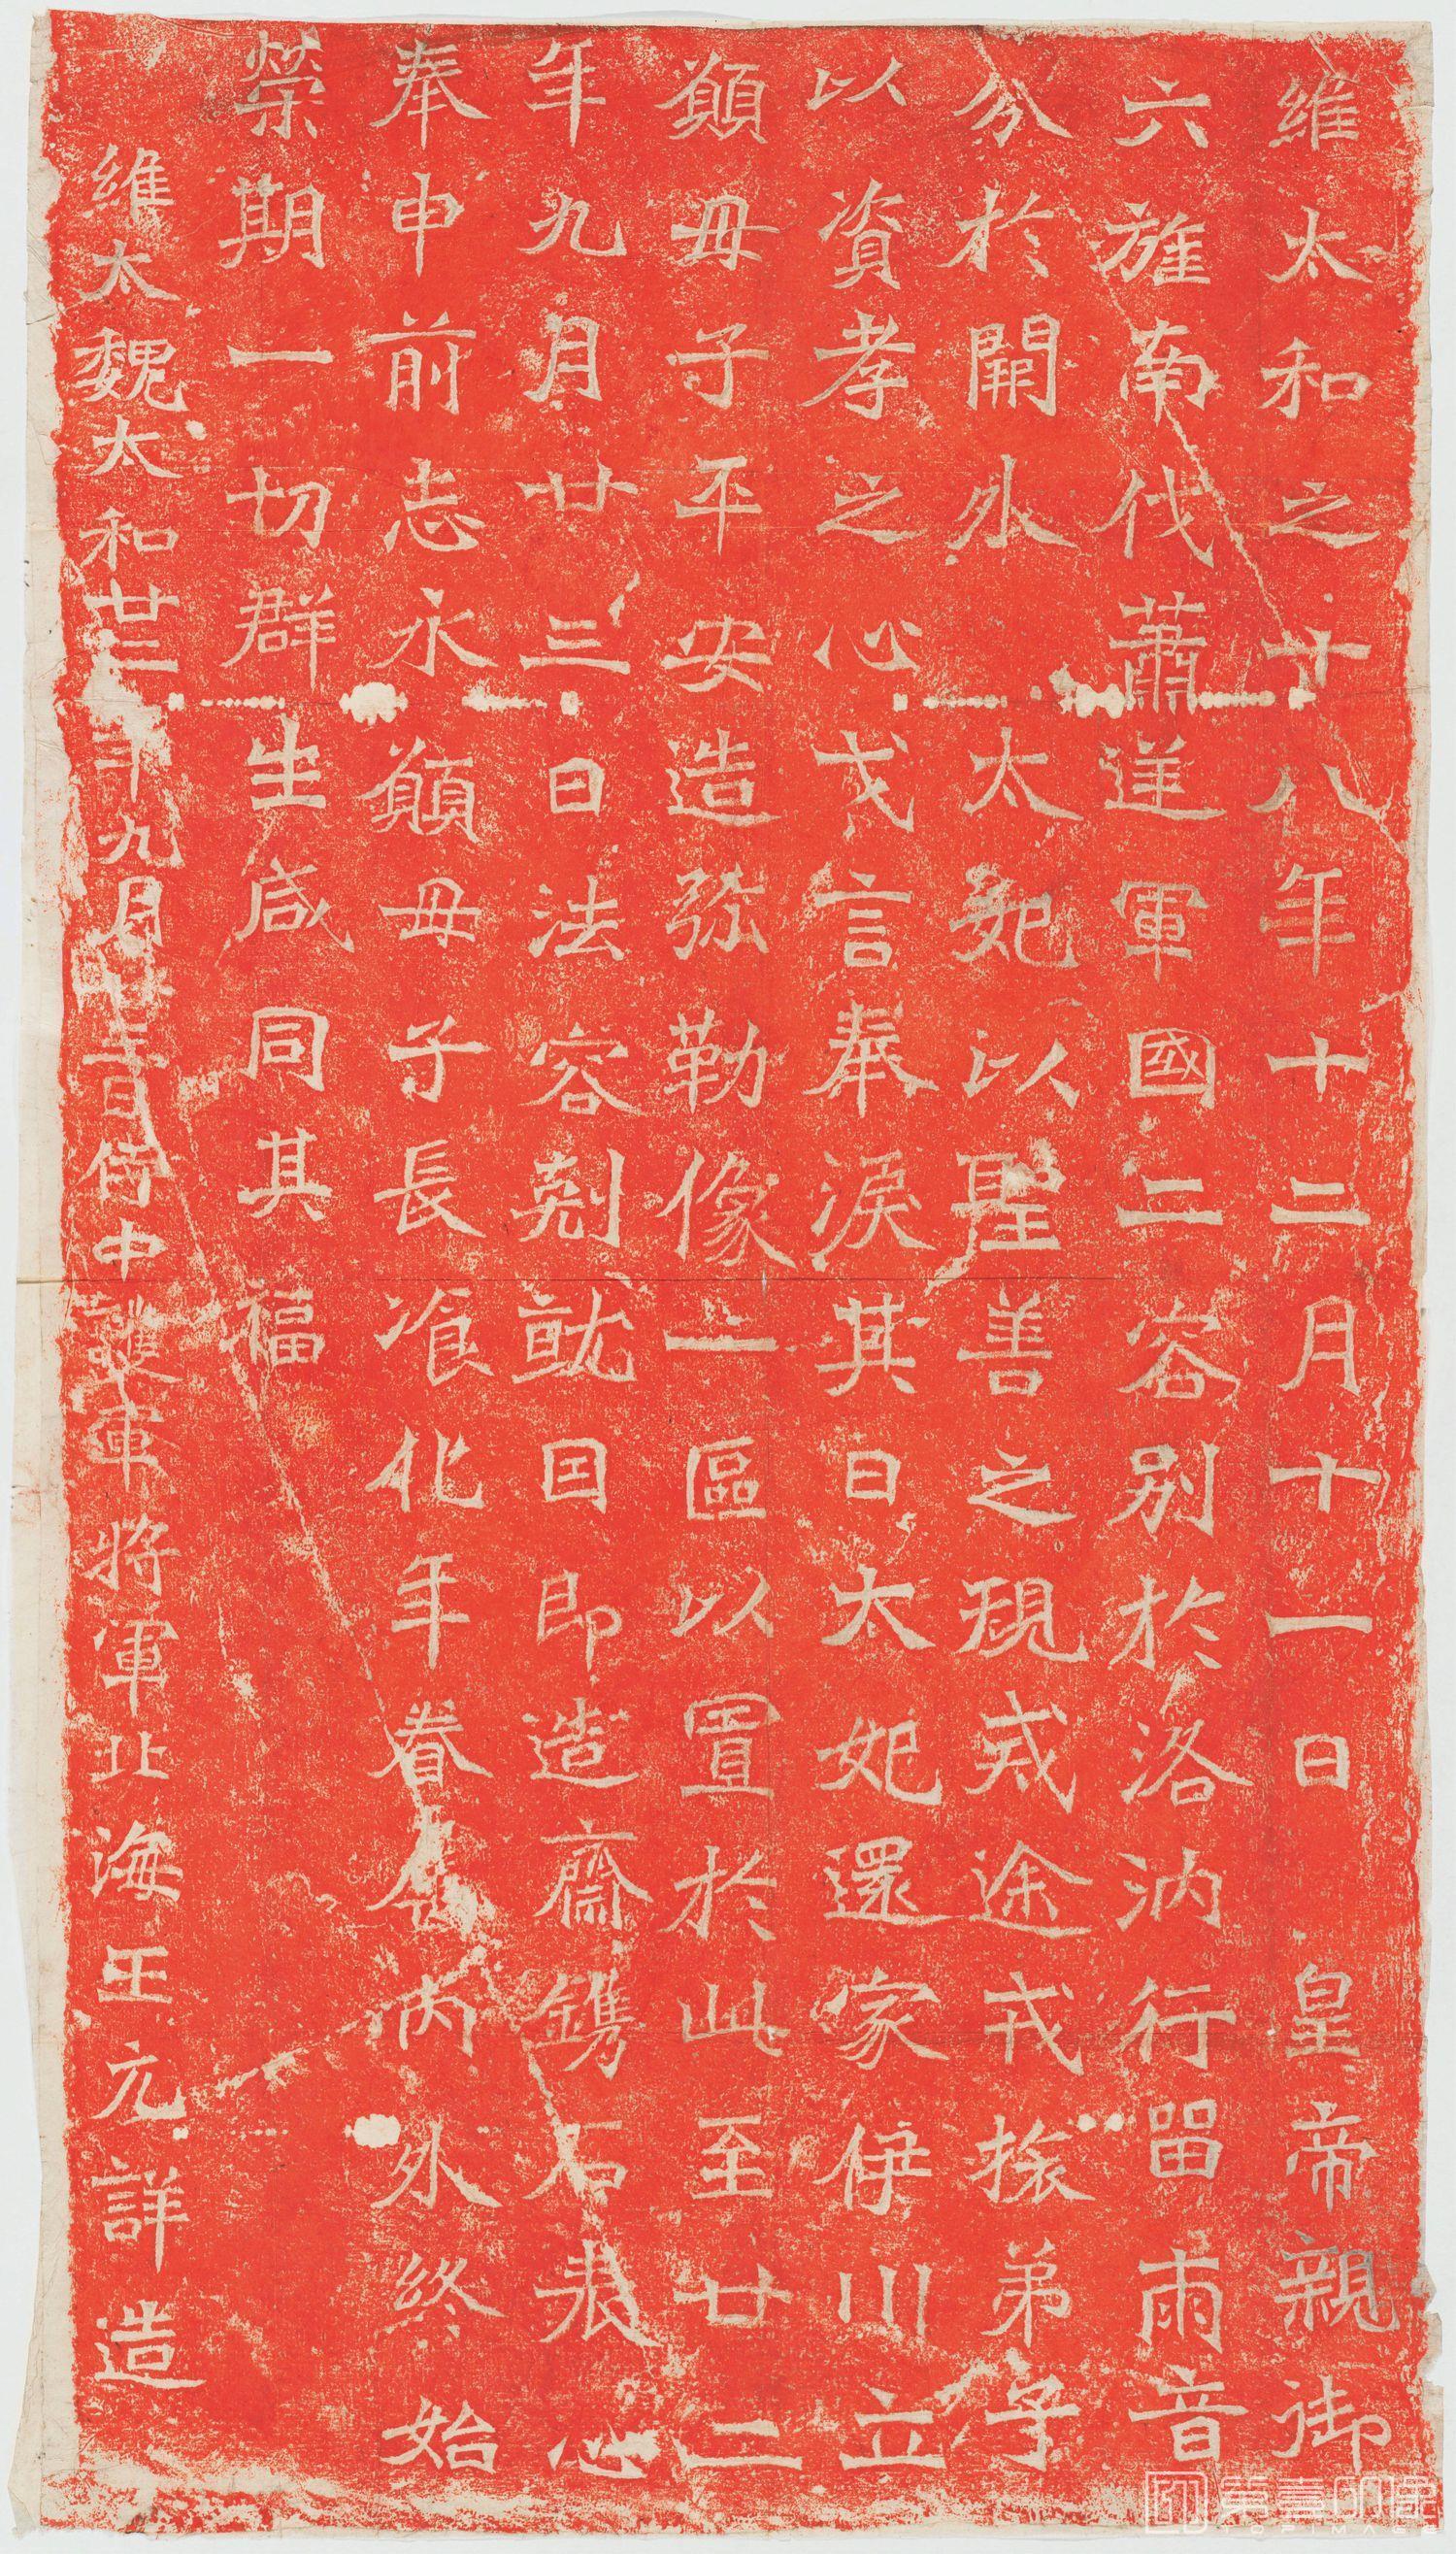 維太和之十八年十二月十一日皇帝親御
六旌南伐蕭逆軍國二容別於洛汭行留兩音
分於闕外太妃以聖善之規戒途戎旅弟子
以資孝之心戈言奉淚其日太妃還家伊川立
願母子平安造弥勒像一區以置於此至廿二
年九月廿三日法容剋就因即造齋鐫石表心
奉申前志永願母子長飡化年眷屬內外終始
榮期一切群生咸同其福
維太魏太和廿二年九月廿三日侍中護軍將軍北海王元詳造
第壹印象
TOPIMAGE